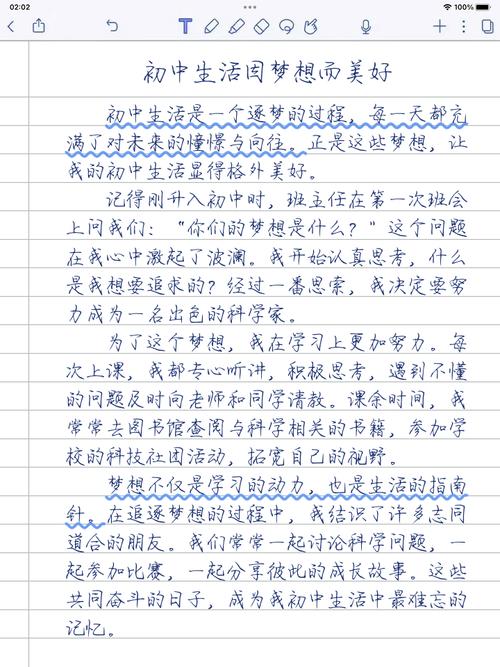 02:02
100%
初中生活因梦想而美好
初中生活是一个逐梦的过程，每一天都充
满了对未来的憧憬与向往。正是这些梦想，让
我的初中生活显得格外美好。
记得刚升入初中时，班主任在第一次班会
上问我们：“你们的梦想是什么？”这个问题
在我心中激起了波澜。我开始认真思考，什么
是我想要追求的？经过一番思索，我决定要努
力成为一名出色的科学家。
为了这个梦想，我在学习上更加努力。每
次上课，我都专心听讲，积极思考，遇到不懂
的问题及时向老师和同学请教。课余时间，我
常常去图书馆查阅与科学相关的书籍，参加学
校的科技社团活动，拓宽自己的视野。
梦想不仅是学习的动力，也是生活的指南
针。在追逐梦想的过程中，我结识了许多志同
道合的朋友。我们常常一起讨论科学问题，一
起参加比赛，一起分享彼此的成长故事。这些
共同奋斗的日子，成为我初中生活中最难忘的
记忆。